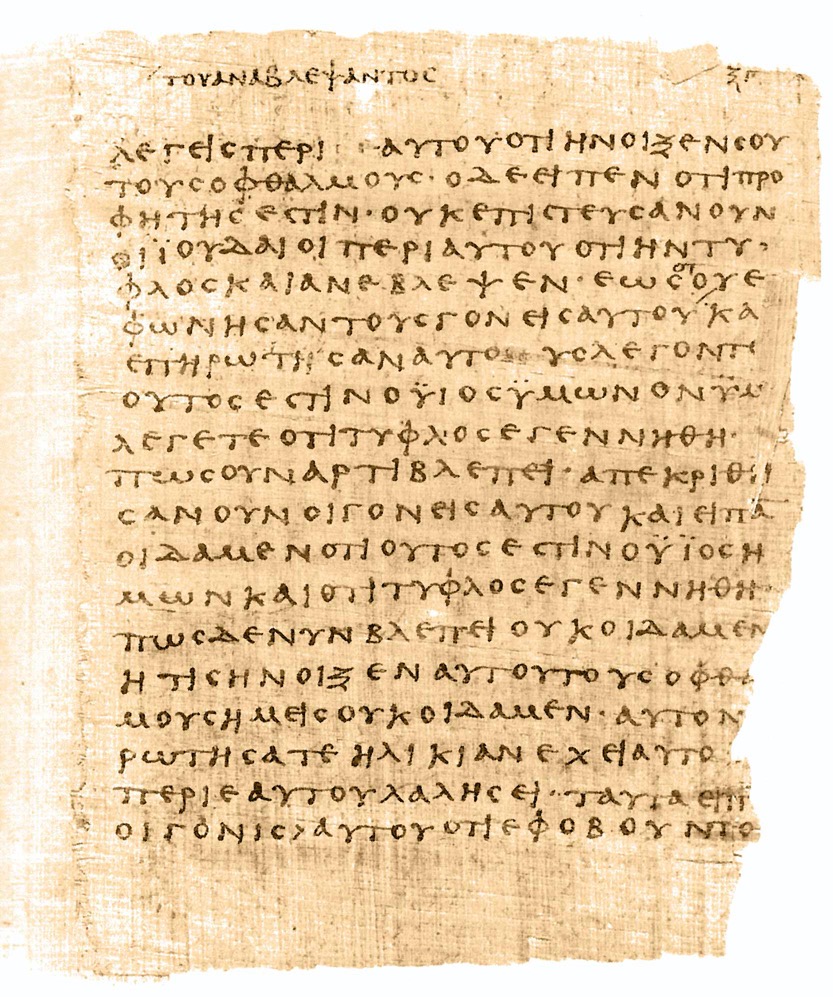 ΤΟΥΑΝΑΒΛΕΨΑΝΤΟС
ΛΕΓΕΙСΠΕΡΙ ΑΥΤΟΥΟΤΙΗΝΟΙΞΕΝСΟΥ
ΤΟΥСΟΦΘΑΛΜΟΥС·ΟΔΕΕΙΠΕΝΟΤΙΠΡΟ
ΦΗΤΗСΕСΤΙΝ·ΟΥΚΕΠΙСΤΕΥСΑΝΟΥΝ
ΟΙΪΟΥΔΑΙΟΙΠΕΡΙΑΥΤΟΥΟΤΙΗΝΤΥ
ΦΛΟСΚΑΙΑΝΕΒΛΕΨΕΝ·ΕΩСΟΤΟΥΕ
ΦΩΝΗСΑΝΤΟΥСΓΟΝΕΙСΑΥΤΟΥΚΑ
ΕΠΗΡΩΤΗСΑΝΑΥΤΟΥСΛΕΓΟΝΤ
ΟΥΤΟСΕСΤΙΝΟΫΙΟСΫΜΩΝΟΝΫΜ
ΛΕΓΕΤΕΟΤΙΤΥΦΛΟСΕΓΕΝΝΗΘΗ·
ΠΩСΟΥΝΑΡΤΙΒΛΕΠΕΙ·ΑΠΕΚΡΙΘΗ
СΑΝΟΥΝΟΙΓΟΝΕΙСΑΥΤΟΥΚΑΙΕΙΠΑ
ΟΙΔΑΜΕΝΟΤΙΟΥΤΟСΕСΤΙΝΟΫΪΟСΗ
ΜΩΝΚΑΙΟΤΙΤΥΦΛΟСΕΓΕΝΝΗΘΗ·
ΠΩСΔΕΝΥΝΒΛΕΠΕΙΟΥΚΟΙΔΑΜΕΝ
ΗΤΙСΗΝΟΙΞΕΝΑΥΤΟΥΤΟΥСΟΦΘΑ
ΜΟΥСΗΜΕΙСΟΥΚΟΙΔΑΜΕΝ·ΑΥΤΟΝ
ΡΩΤΗСΑΤΕΗΛΙΚΙΑΝΕΧΕΙΑΥΤΟ
ΠΕΡΙΕΑΥΤΟΥΛΑΛΗСΕΙ·ΤΑΥΤΑΕΙΠ
ΟΙΓΟΝΙС>ΑΥΤΟΥΟΤΙΕΦΟΒΟΥΝΤΟ